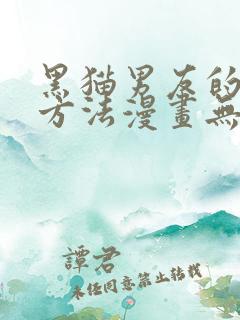 黑猫男友的
方法漫畫無
譚君
未经同意禁止转载